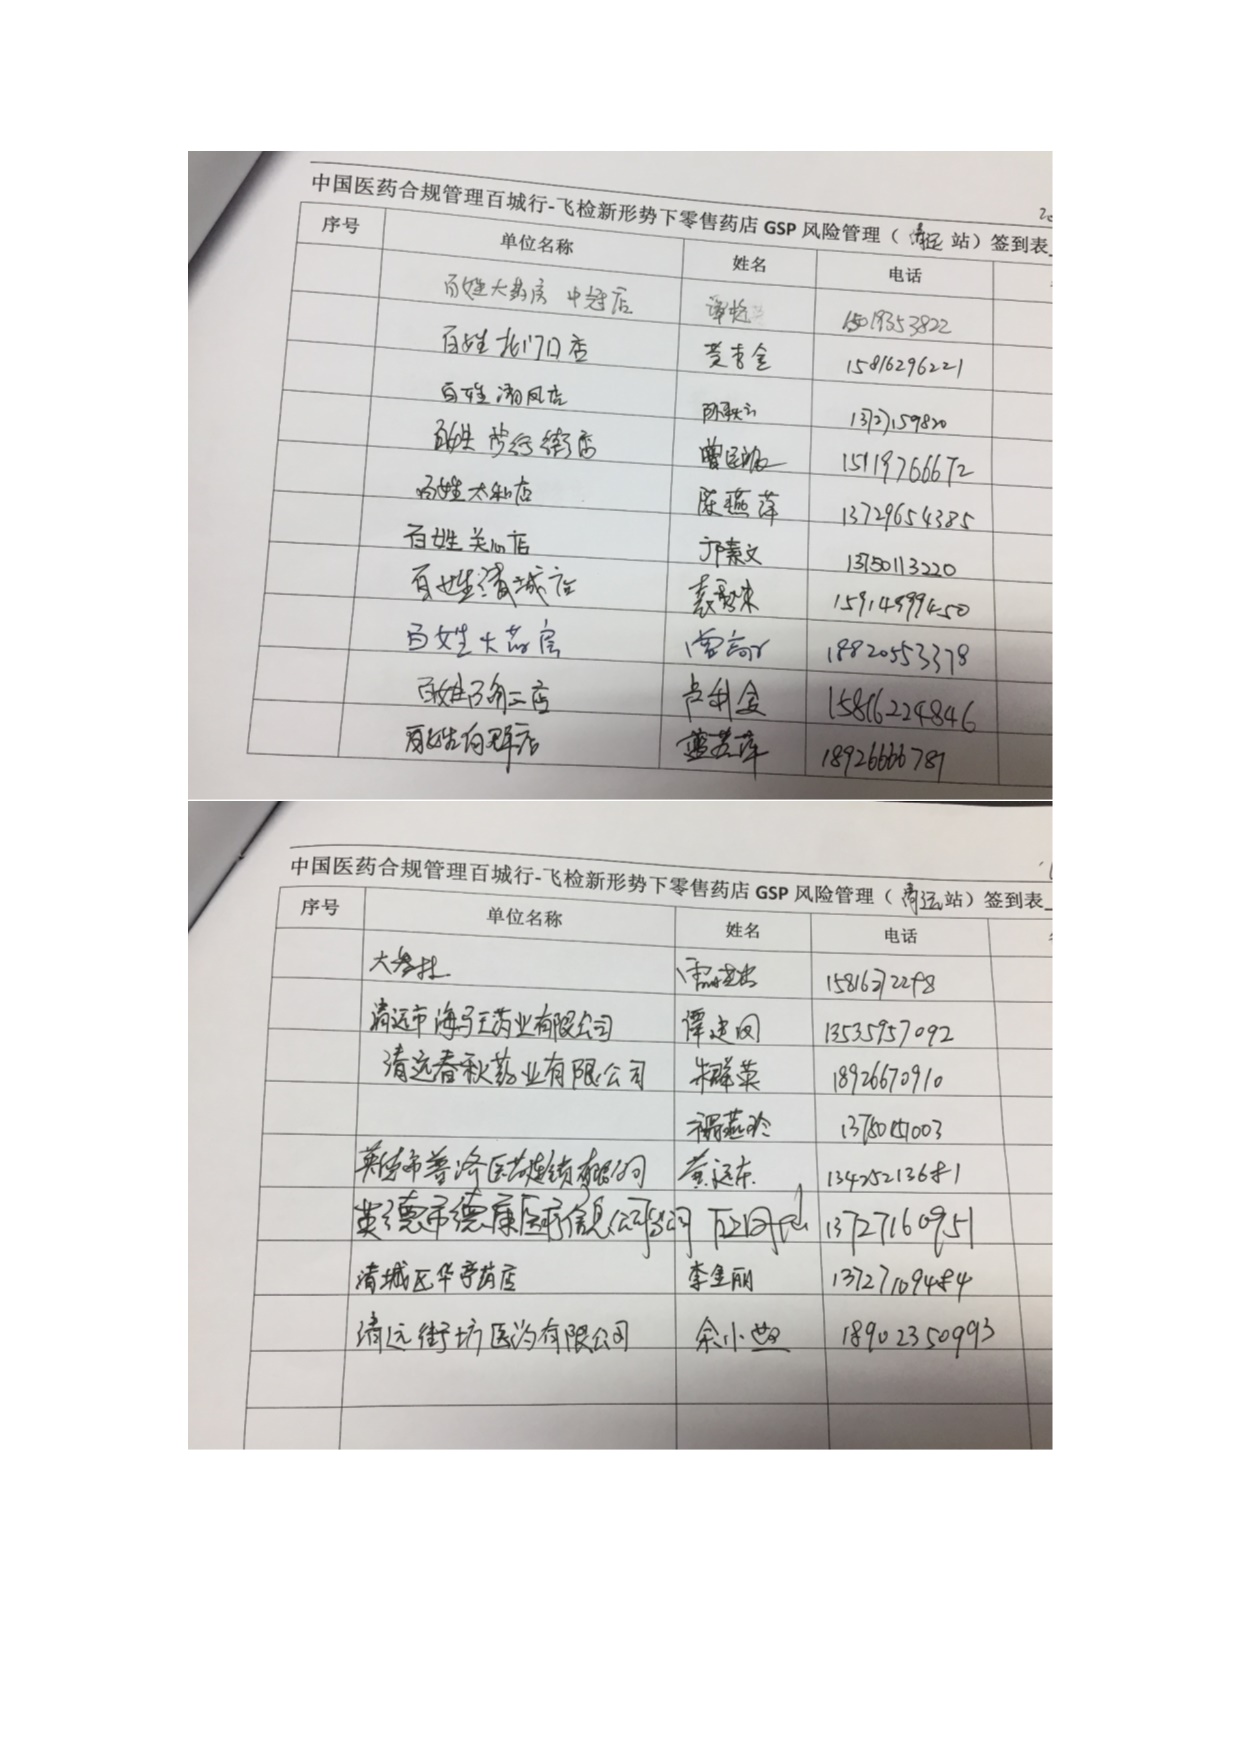 中国医药合规管理百城行-飞检新形势下零售药店 GSP 风险管理（清远 站）签到表
序号 单位名称 姓名 电话
百姓大药房 中冠店 谭 15019353822
百姓北门口店 黄杏金 15816296221
百姓清风店 13727159820
百姓步行街店 曾 15119766672
百姓太和店 陈燕萍 13729654385
百姓关心店 邝素文 13750113220
百姓清城店 袁 15914899450
百姓大药房 曾 18820553378
百姓 二店 卢利金 15816224846
百姓 店 蓝 萍 18926666781
中国医药合规管理百城行-飞检新形势下零售药店 GSP 风险管理（清远站）签到表
序号 单位名称 姓名 电话
大参林 158
清远市海马王药业有限公司 谭建 13535957092
清远春秋药业有限公司 朱群英 18926670910
燕玲
英德市普济医药连锁有限公司 黄远东 13425213681
英德市德康医疗信息公司 13727160951
清城区华亭药店 李金丽 13727109484
清远街坊医药有限公司 余小 18902350993